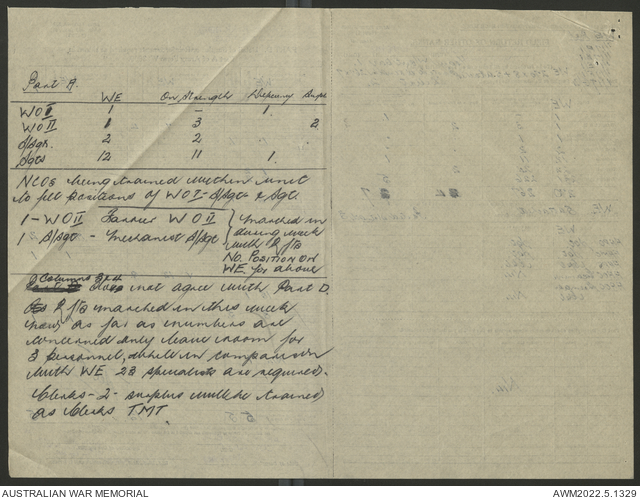 Part A.
WE On Strength Deficiency Surplus
WO I 1 — 1.
WO II 1 3 2
S/Sgts. 2 2
Sgts 12 11 1
NCOs being trained within unit
to fill positions of WO I - S/Sgt & Sgt.
1 - WO II Farrier WO II marched in
1 S/Sgt - Mechanist S/Sgt during week
with R
No. Position on
WE for above
Columns
does not agree with Part D.
R marched in this week
now as far as numbers are
concerned only leave room for
3 personnel, while in comparison
with WE 23 specialists are required.
Clerks - 2 - surplus will be trained
as Clerks TMT
AUSTRALIAN WAR MEMORIAL
AWM2022.5.1329